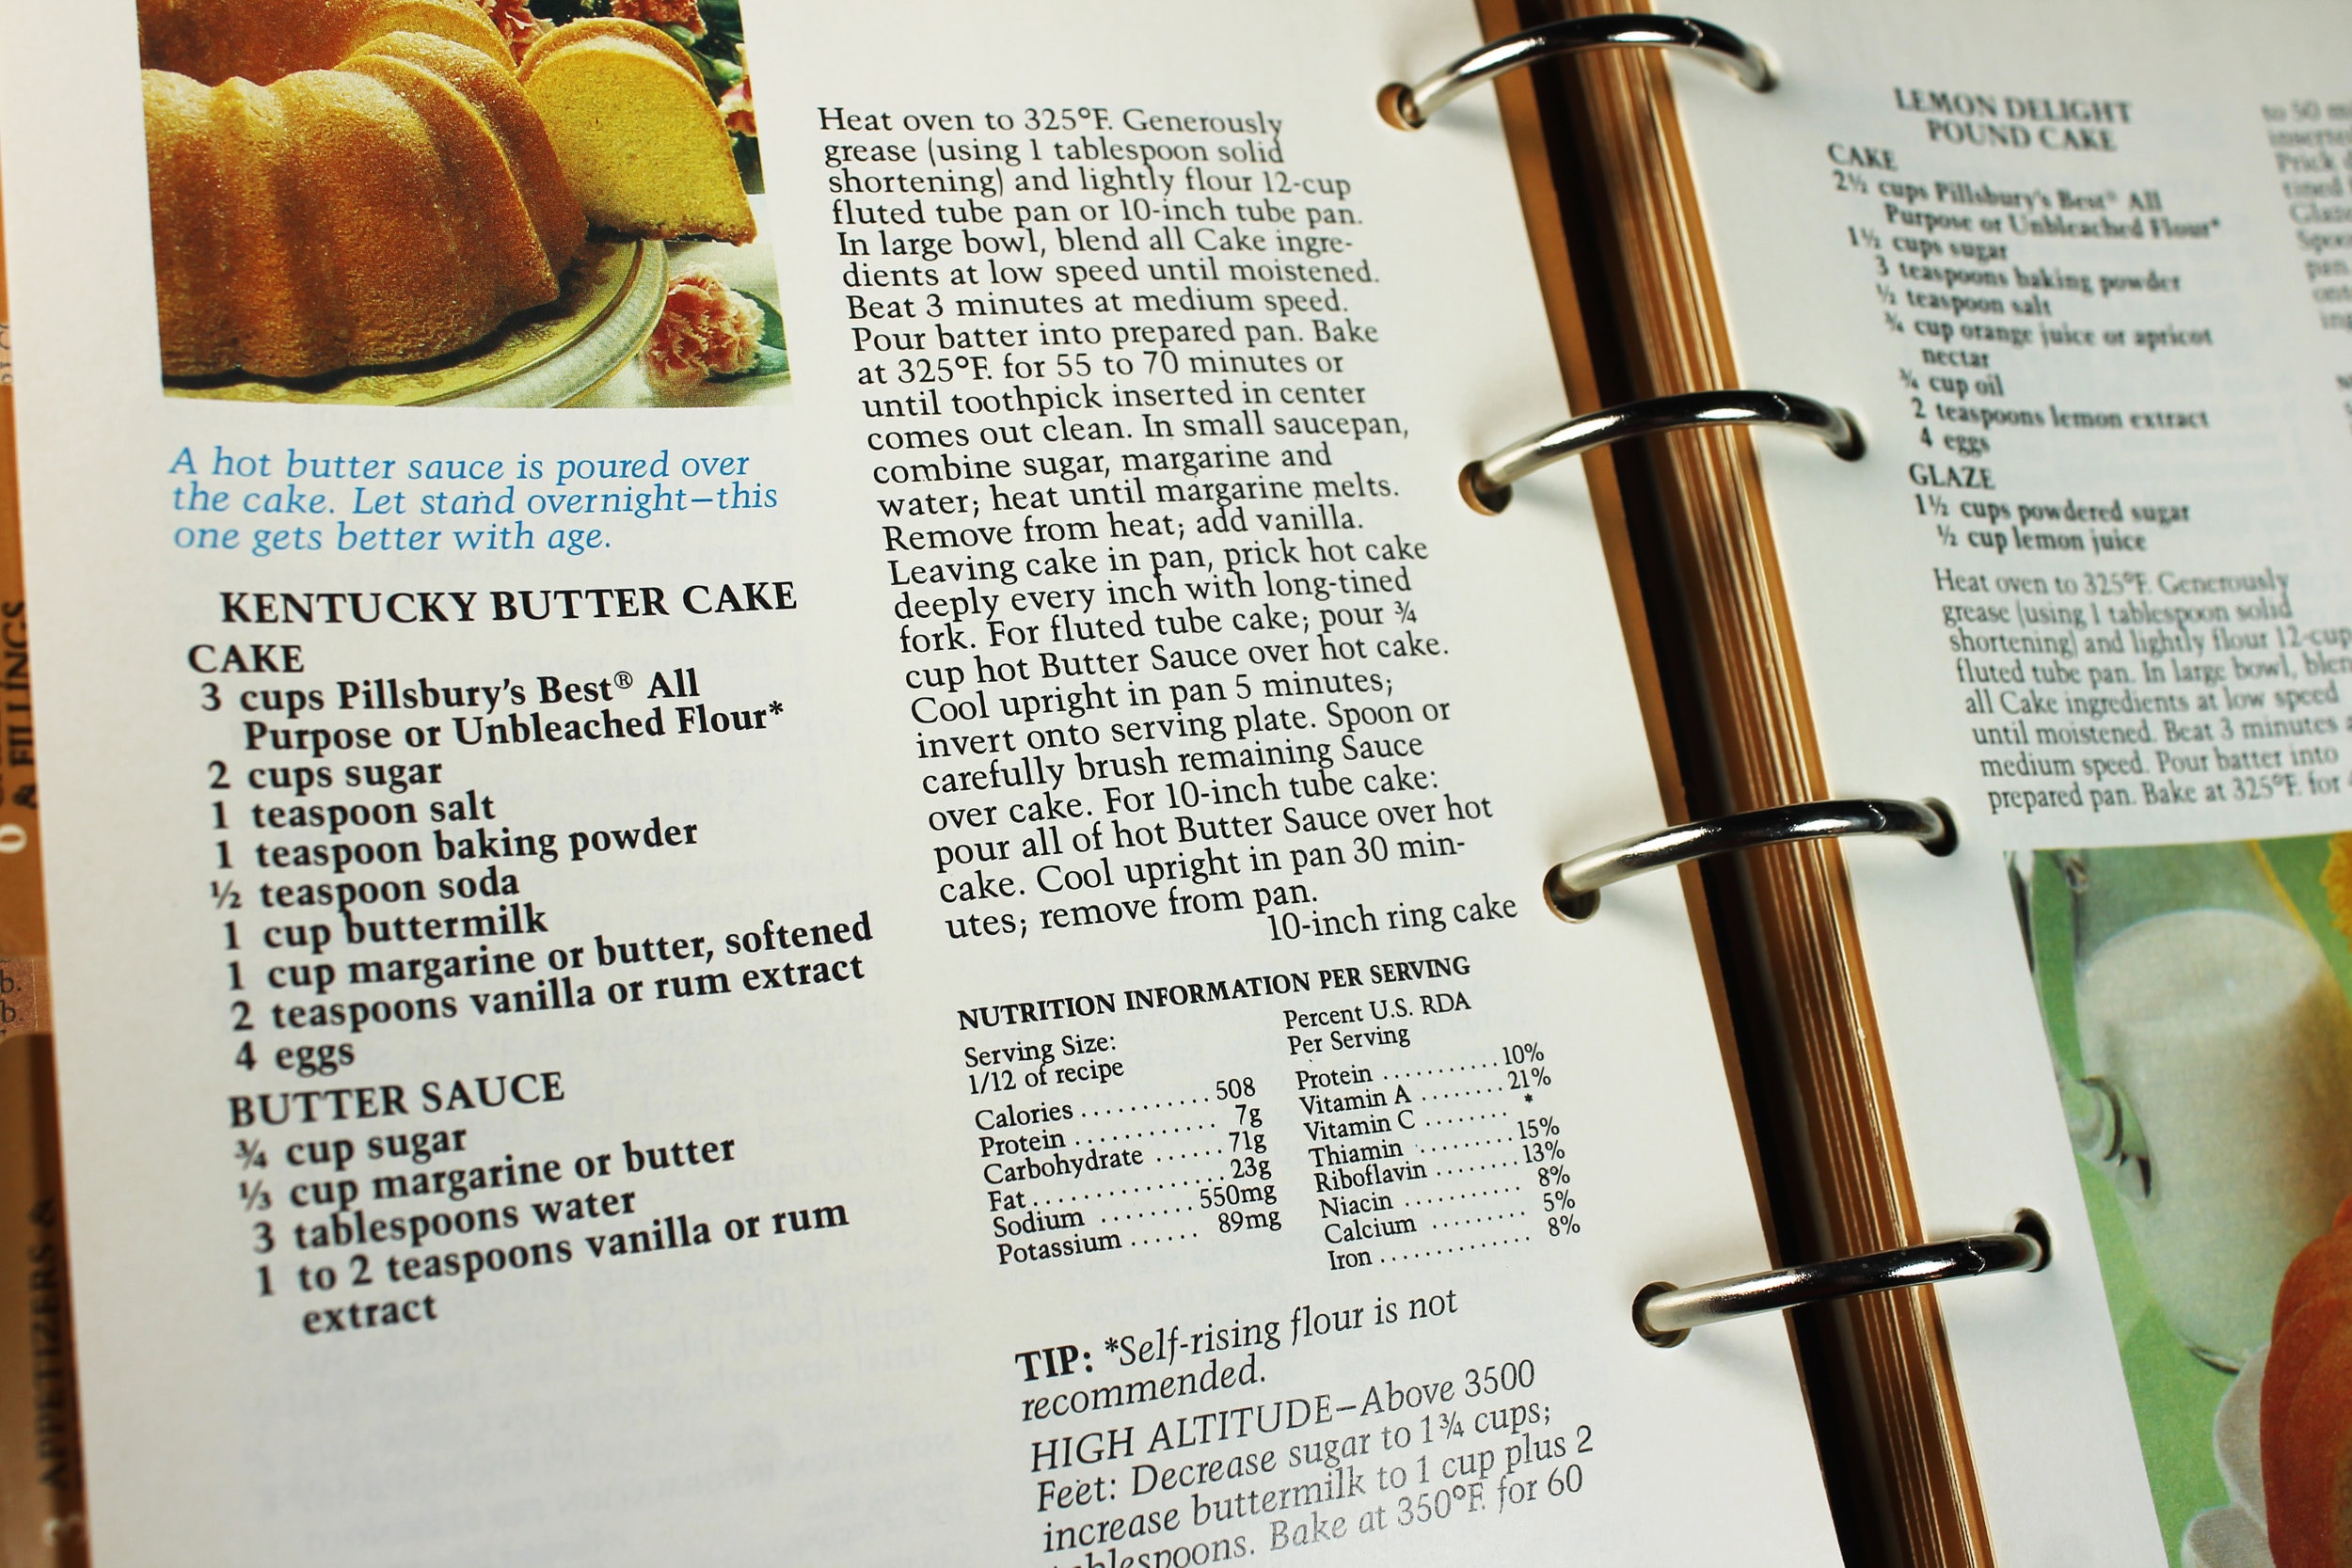 A hot butter sauce is poured over
the cake. Let stand overnight—this
one gets better with age.
KENTUCKY BUTTER CAKE
CAKE
3 cups Pillsbury's Best® All
Purpose or Unbleached Flour*
2 cups sugar
1 teaspoon salt
1 teaspoon baking powder
½ teaspoon soda
1 cup buttermilk
1 cup margarine or butter, softened
2 teaspoons vanilla or rum extract
4 eggs
BUTTER SAUCE
¾ cup sugar
⅓ cup margarine or butter
3 tablespoons water
1 to 2 teaspoons vanilla or rum
extract
Heat oven to 325°F. Generously
grease (using 1 tablespoon solid
shortening) and lightly flour 12-cup
fluted tube pan or 10-inch tube pan.
In large bowl, blend all Cake ingre-
dients at low speed until moistened.
Beat 3 minutes at medium speed.
Pour batter into prepared pan. Bake
at 325°F. for 55 to 70 minutes or
until toothpick inserted in center
comes out clean. In small saucepan,
combine sugar, margarine and
water; heat until margarine melts.
Remove from heat; add vanilla.
Leaving cake in pan, prick hot cake
deeply every inch with long-tined
fork. For fluted tube cake; pour ¾
cup hot Butter Sauce over hot cake.
Cool upright in pan 5 minutes;
invert onto serving plate. Spoon or
carefully brush remaining Sauce
over cake. For 10-inch tube cake:
pour all of hot Butter Sauce over hot
cake. Cool upright in pan 30 min-
utes; remove from pan.
10-inch ring cake
NUTRITION INFORMATION PER SERVING
Serving Size:
1/12 of recipe
Calories ........... 508
Protein ............. 7g
Carbohydrate ...... 71g
Fat ................. 23g
Sodium ........ 550mg
Potassium ...... 89mg
Percent U.S. RDA
Per Serving
Protein ........... 10%
Vitamin A ........ 21%
Vitamin C ........ *
Thiamin .......... 15%
Riboflavin ........ 13%
Niacin ........... 8%
Calcium ......... 5%
Iron .............. 8%
TIP: *Self-rising flour is not
recommended.
HIGH ALTITUDE—Above 3500
Feet: Decrease sugar to 1¾ cups;
increase buttermilk to 1 cup plus 2
tablespoons. Bake at 350°F. for 60
LEMON DELIGHT
POUND CAKE
CAKE
2½ cups Pillsbury's Best® All
Purpose or Unbleached Flour*
1½ cups sugar
3 teaspoons baking powder
½ teaspoon salt
¾ cup orange juice or apricot
nectar
¾ cup oil
2 teaspoons lemon extract
4 eggs
GLAZE
1½ cups powdered sugar
½ cup lemon juice
Heat oven to 325°F. Generously
grease (using 1 tablespoon solid
shortening) and lightly flour 12-cup
fluted tube pan. In large bowl, blen
all Cake ingredients at low speed
until moistened. Beat 3 minutes
medium speed. Pour batter into
prepared pan. Bake at 325°F. for
to 50
Prick
& FILLINGS
APPETIZERS &
b.
b.
3